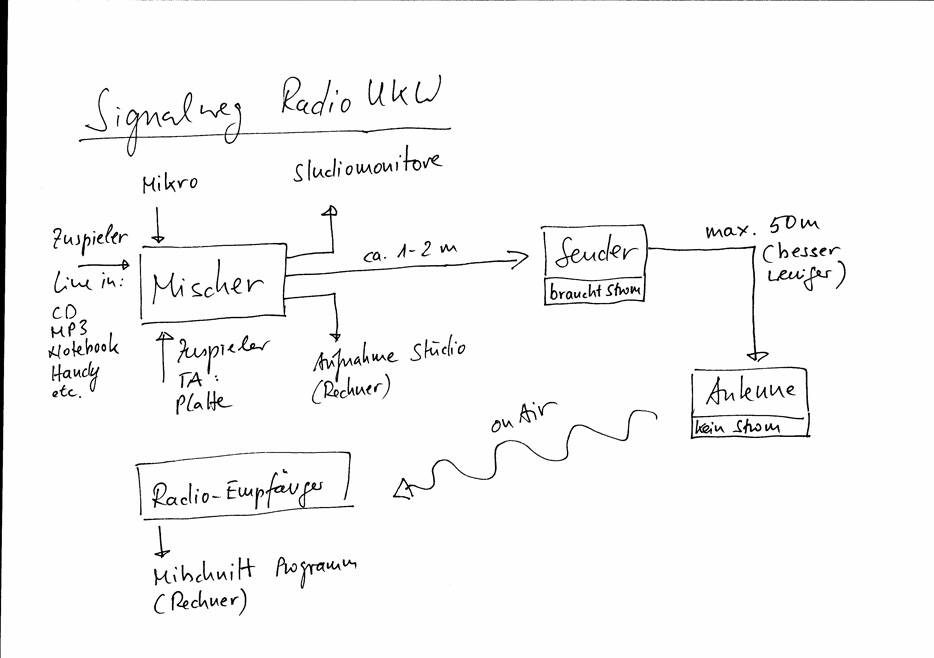 Signalweg Radio UKW
Mikro
Studiomonitore
Zuspieler
Line in:
CD
MP3
Notebook
Handy
etc.
Mischer
ca. 1-2 m
Sender
braucht Strom
max. 50m
(besser
weniger)
Zuspieler
TA:
Platte
Aufnahme Studio
(Rechner)
Antenne
kein Strom
on Air
Radio-Empfänger
Mitschnitt Programm
(Rechner)